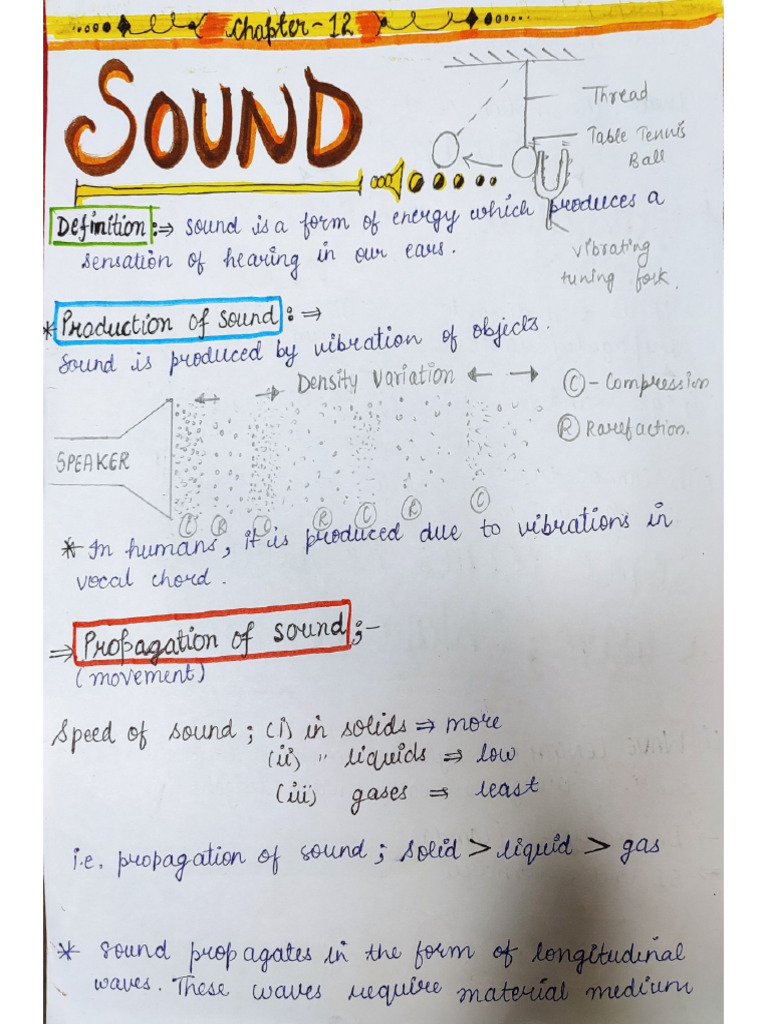 Chapter-12
SOUND
Thread
Table Tennis
Ball
vibrating
tuning fork.
Definition :⇒ sound is a form of energy which produces a
sensation of hearing in our ears.
* Production of sound :⇒
Sound is produced by vibration of objects.
Density Variation
C - Compression
R Rarefaction.
SPEAKER
C R C R C R C
* In humans, it is produced due to vibrations in
vocal chord.
⇒ Propagation of sound ;-
(movement)
Speed of sound ; (i) in solids ⇒ more
(ii) " liquids ⇒ low
(iii) gases ⇒ least
i.e. propagation of sound ; solid > liquid > gas
* Sound propagates in the form of longitudinal
waves. These waves require material medium